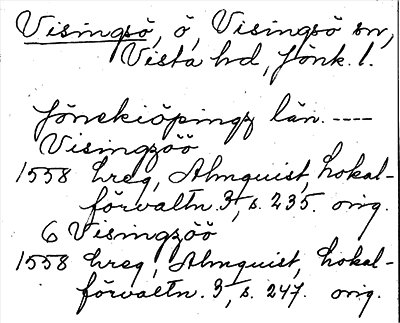 Visingsö, ö, Visingsö sn,
Vista hd, Jönk. l.
Jöneköpingz län. ----
Visingzöö
1558 hreg, Almquist, Lokal-
förvaltn. 3, s. 235. orig.
6 Visingzöö
1558 hreg, Almquist, Lokal-
förvaltn. 3, s. 247. orig.